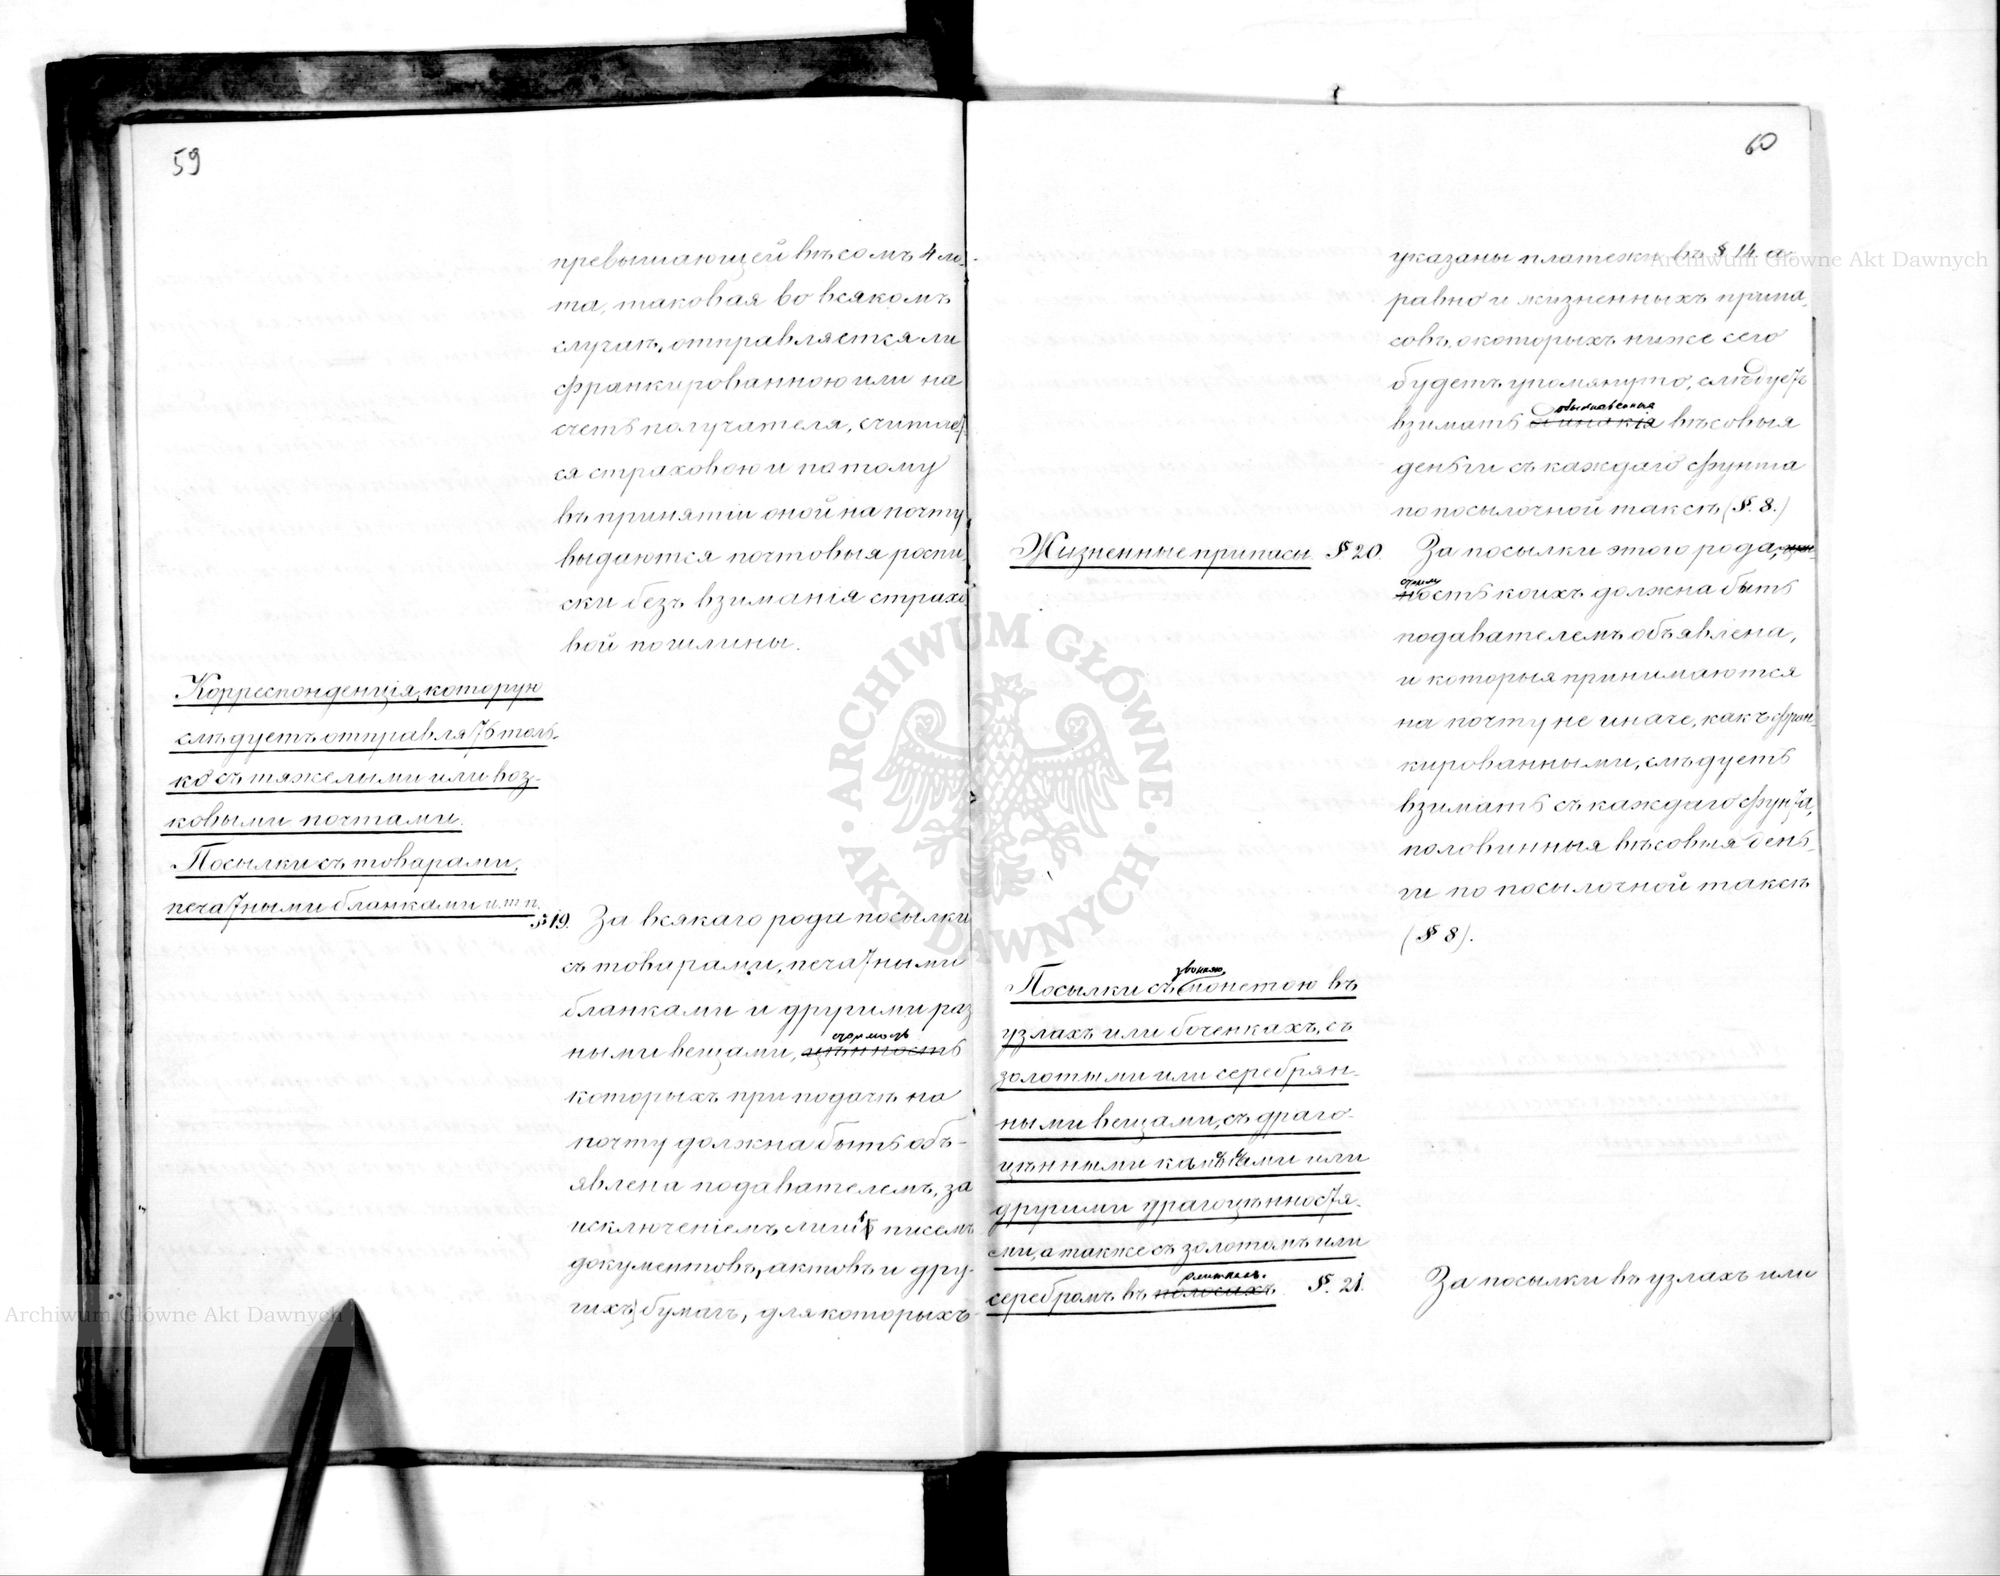 59
превышающей вѣсомъ 4 ло-
та, таковая во всякомъ
случаѣ, отправляется ли
франкированною или на
счетъ получателя, считает
ся страховою и потому
въ принятіи оной на почту
выдаются почтовыя роспи-
ски безъ взиманія страхо
вой пошлины.
Корреспонденція, которую
слѣдуетъ отправлять толь-
ко съ тяжелыми или воз-
ковыми почтами.
Посылки съ товарами,
печатными бланками и т п.
§ 19. За всякаго рода посылки
съ товарами, печатными
бланками и другими раз
ными вещами, цѣнность
стоимость
которыхъ при подачѣ на
почту должна быть объ-
явлена подавателемъ, за
исключеніемъ лишь писемъ
документовъ, актовъ и дру-
гихъ бумагъ, для которыхъ
60
указаны платежи въ § 14. а
равно и жизненныхъ припа-
совъ, о которыхъ ниже сего
будетъ упомянуто, слѣдуетъ
обыкновенныя
взимать вѣсовыя
деньги съ каждаго фунта
по посылочной таксѣ (§. 8.)
Жизненные припасы. § 20. За посылки этого рода, цѣн-
стоим
ность коихъ должна быть
подавателемъ объявлена,
и которыя принимаются
на почту не иначе, какъ фран-
кированными, слѣдуетъ
взимать съ каждаго фунта,
половинныя вѣсовыя день-
ги по посылочной таксѣ
(§ 8).
звонкою
Посылки съ монетою въ
узлахъ или боченкахъ, съ
золотыми или серебрян-
ными вещами, съ драго-
цѣнными камнями или
другими драгоцѣнностя-
ми, а также съ золотомъ или
слиткахъ.
серебромъ въ полосахъ. §. 21. За посылки въ узлахъ или
Archiwum Główne Akt Dawnych
Archiwum Główne Akt Dawnych
ARCHIWUM GŁÓWNE · AKT DAWNYCH ·